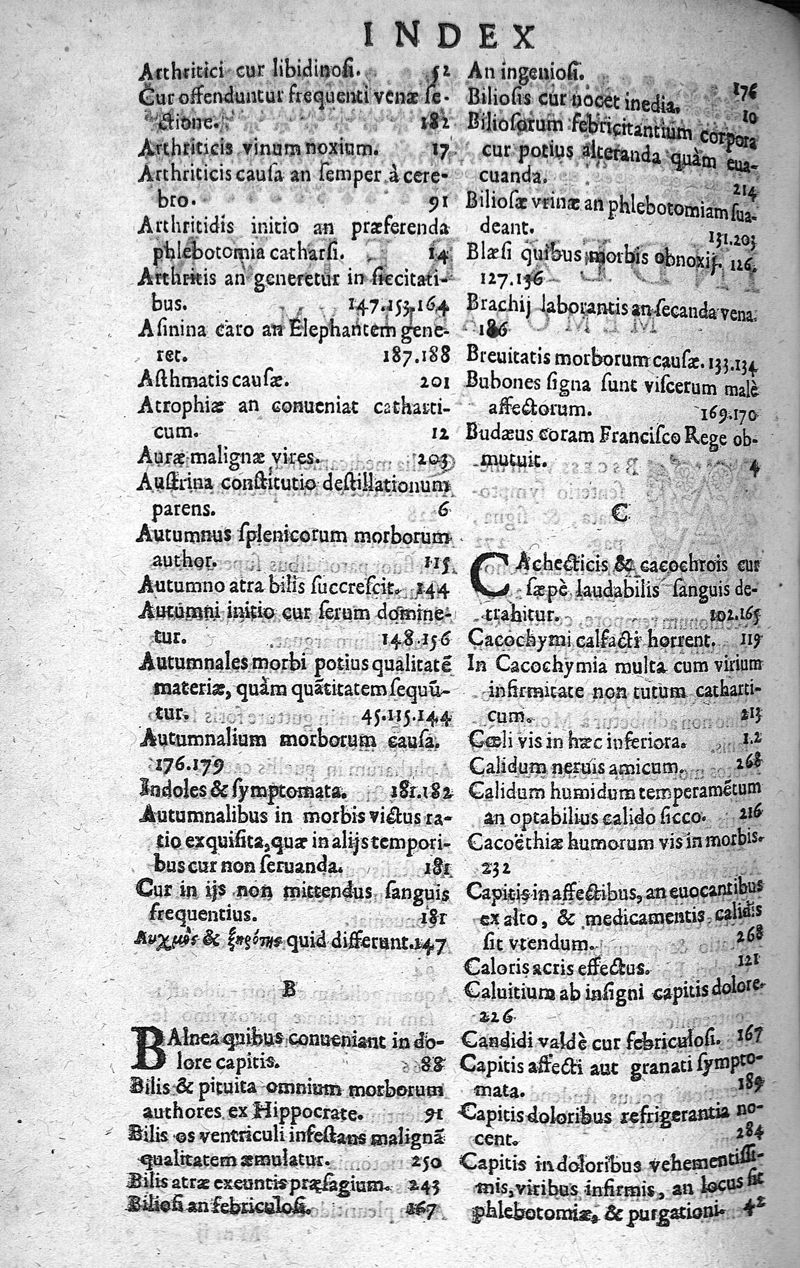 INDEX
Arthritici cur libidinosi. 52
Cur offenduntur frequenti venæ se-
ctione. 182
Arthriticis vinum noxium. 17
Arthriticis causa an semper à cere-
bro. 91
Arthritidis initio an præferenda
phlebotomia catharsi. 14
Arthritis an generetur in siccitati-
bus. 147.153.164
Asinina caro an Elephantem gene-
ret. 187.188
Asthmatis causæ. 201
Atrophiæ an conueniat catharti-
cum. 12
Auræ malignæ vires. 203
Austrina constitutio destillationum
parens. 6
Autumnus splenicorum morborum
author. 115
Autumno atra bilis succrescit. 144
Autumni initio cur serum domine-
tur. 148.156
Autumnales morbi potius qualitatē
materiæ, quàm quātitatem sequū-
tur. 45.115.144
Autumnalium morborum causa.
176.179
Indoles & symptomata. 181.182
Autumnalibus in morbis victus ra-
tio exquisita, quæ in alijs tempori-
bus cur non seruanda. 181
Cur in ijs non mittendus sanguis
frequentius. 181
Αυχμὸς & ξηρότης quid differunt. 147
B
BAlnea quibus conueniant in do-
lore capitis. 88
Bilis & pituita omnium morborum
authores ex Hippocrate. 91
Bilis os ventriculi infestans malignā
qualitatem æmulatur. 250
Bilis atræ exeuntis præsagium. 243
Biliosi an febriculosi. 267
An ingeniosi. 176
Biliosis cur nocet inedia. 10
Biliosorum febricitantium corpora
cur potius alteranda quàm eua-
cuanda. 214
Biliosæ vrinæ an phlebotomiam sua-
deant. 131.203
Blæsi quibus morbis obnoxij. 126.
127.136
Brachij laborantis an secanda vena.
186
Breuitatis morborum causæ. 133.134
Bubones signa sunt viscerum malè
affectorum. 169.170
Budæus coram Francisco Rege ob-
mutuit. 4
C
CAchecticis & cacochrois cur
sæpè laudabilis sanguis de-
trahitur. 102.165
Cacochymi calfacti horrent. 119
In Cacochymia multa cum virium
infirmitate non tutum catharti-
cum. 213
Cœli vis in hæc inferiora. 1.2
Calidum neruis amicum. 268
Calidum humidum temperamētum
an optabilius calido sicco. 216
Cacoëthiæ humorum vis in morbis.
232
Capitis in affectibus, an euocantibus
ex alto, & medicamentis calidis
sit vtendum. 268
Caloris acris effectus. 121
Caluitium ab insigni capitis dolore.
226
Candidi valdè cur febriculosi. 167
Capitis affecti aut grauati sympto-
mata. 189
Capitis doloribus refrigerantia no-
cent. 284
Capitis in doloribus vehementissi-
mis, viribus infirmis, an locus sit
phlebotomiæ, & purgationi. 42